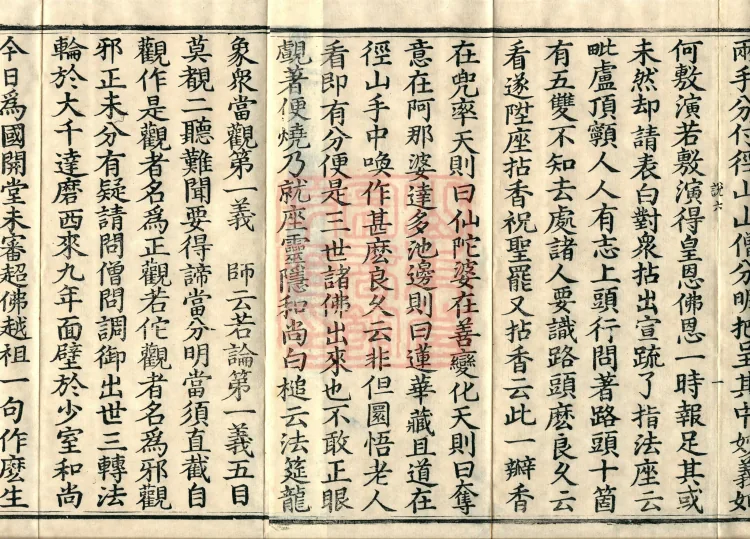 兩手分付徑山山僧分明指呈其中妙義如
何敷演若敷演得皇恩佛恩一時報足其或
說六
一
未然却請表白對衆拈出宣疏了指法座云
毗盧頂𩕳人人有志上頭行問著路頭十箇
有五雙不知去處諸人要識路頭麽良久云
看遂陞座拈香祝聖罷又拈香云此一瓣香
在兜率天則曰仙陀婆在善變化天則曰奪
意在阿那婆達多池邊則曰蓮華藏且道在
徑山手中喚作甚麽良久云非但圜悟老人
看即有分便是三世諸佛出來也不敢正眼
覷著便燒乃就座靈隱和尚白槌云法筵龍
象衆當觀第一義　師云若論第一義五目
莫覩二聽難聞要得諦當分明當須直截自
觀作是觀者名爲正觀若佗觀者名爲邪觀
邪正未分有疑請問僧問調御出世三轉法
輪於大千達磨西來九年面壁於少室和尚
今日爲國開堂未審超佛越祖一句作麽生